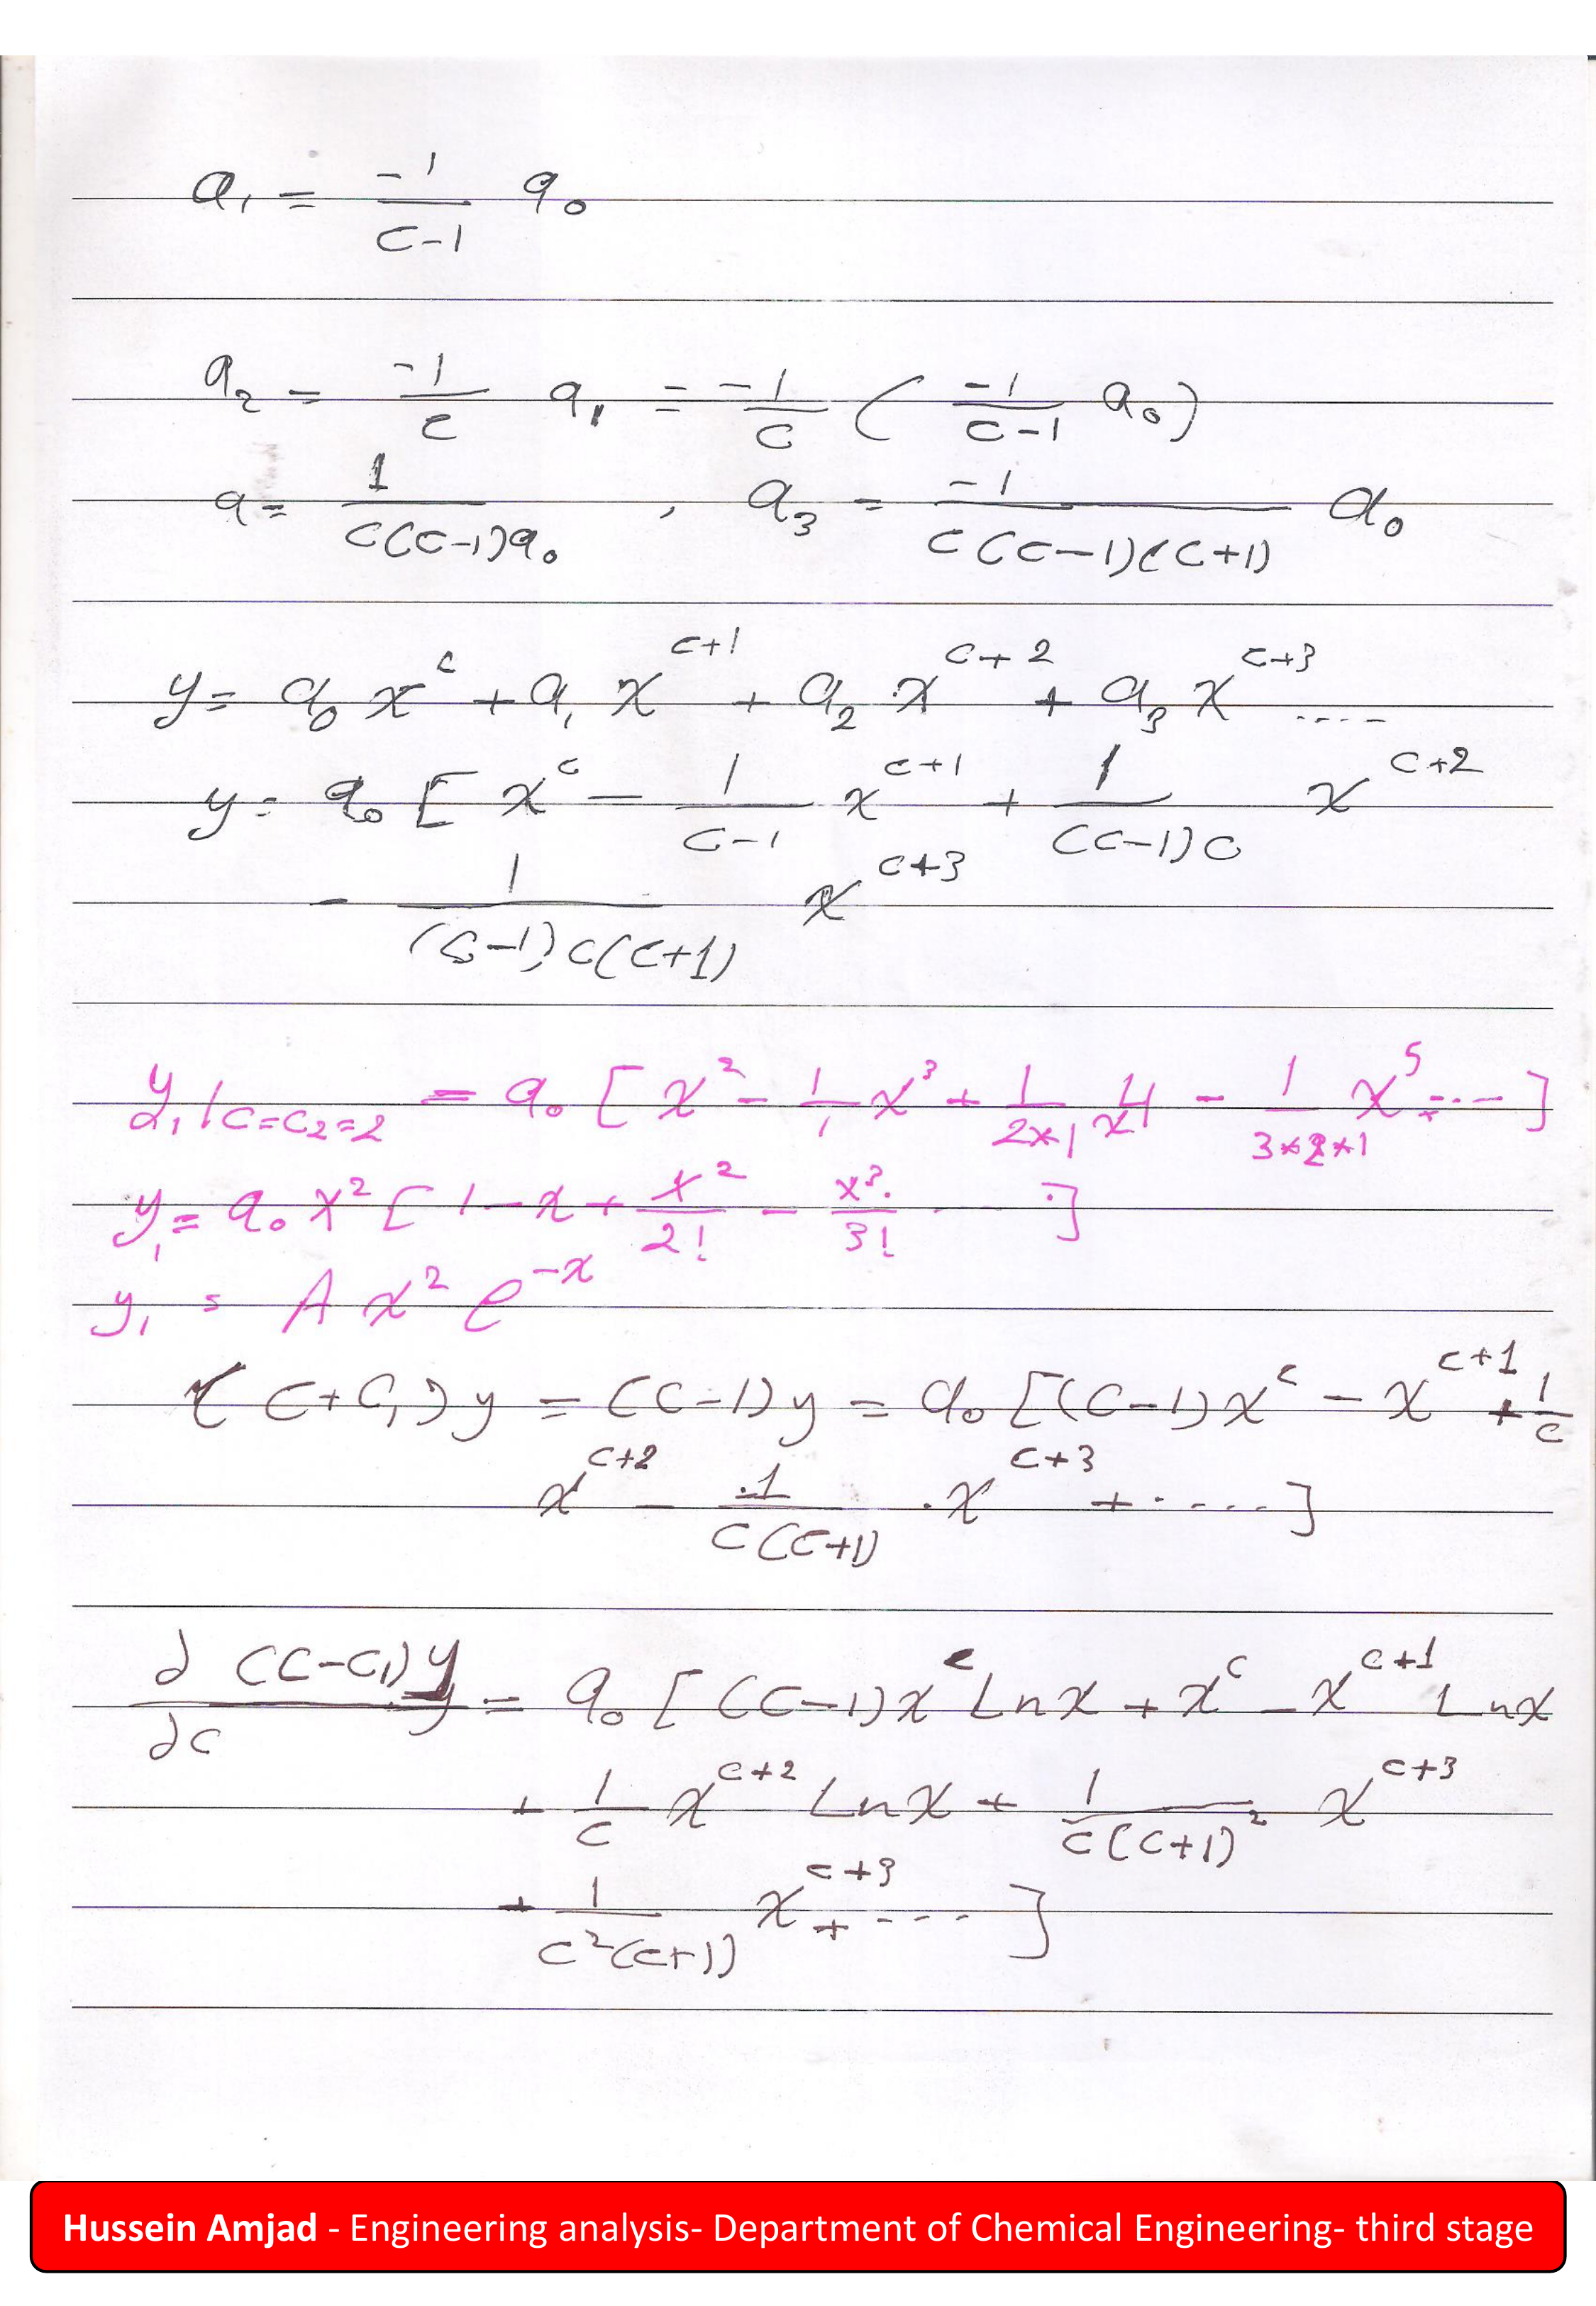 a₁ = -1/(c-1) a₀
a₂ = -1/c a₁ = -1/c ( -1/(c-1) a₀ )
a = 1/(c(c-1)a₀) , a₃ = -1/(c(c-1)(c+1)) a₀
y = a₀ x^c + a₁ x^(c+1) + a₂ x^(c+2) + a₃ x^(c+3) ....
y = a₀ [ x^c - 1/(c-1) x^(c+1) + 1/((c-1)c) x^(c+2)
- 1/((c-1)c(c+1)) x^(c+3)
y₁ | c=c₂=2 = a₀ [ x² - 1/1 x³ + 1/(2*1) x⁴ - 1/(3*2*1) x⁵ .... ]
y₁ = a₀ x² [ 1 - x + x²/2! - x³/3! .... ]
y₁ = A x² e^(-x)
(c+c₁) y = (c-1) y = a₀ [(c-1) x^c - x^(c+1) + 1/c
x^(c+2) - 1/(c(c+1)) . x^(c+3) + ..... ]
∂ (c-c₁) y / ∂c = a₀ [ (c-1) x^c Ln x + x^c - x^(c+1) Ln x
+ 1/c x^(c+2) Ln x + 1/(c(c+1)²) x^(c+3)
+ 1/(c²(c+1)) x^(c+3) + .... ]
Hussein Amjad - Engineering analysis- Department of Chemical Engineering- third stage